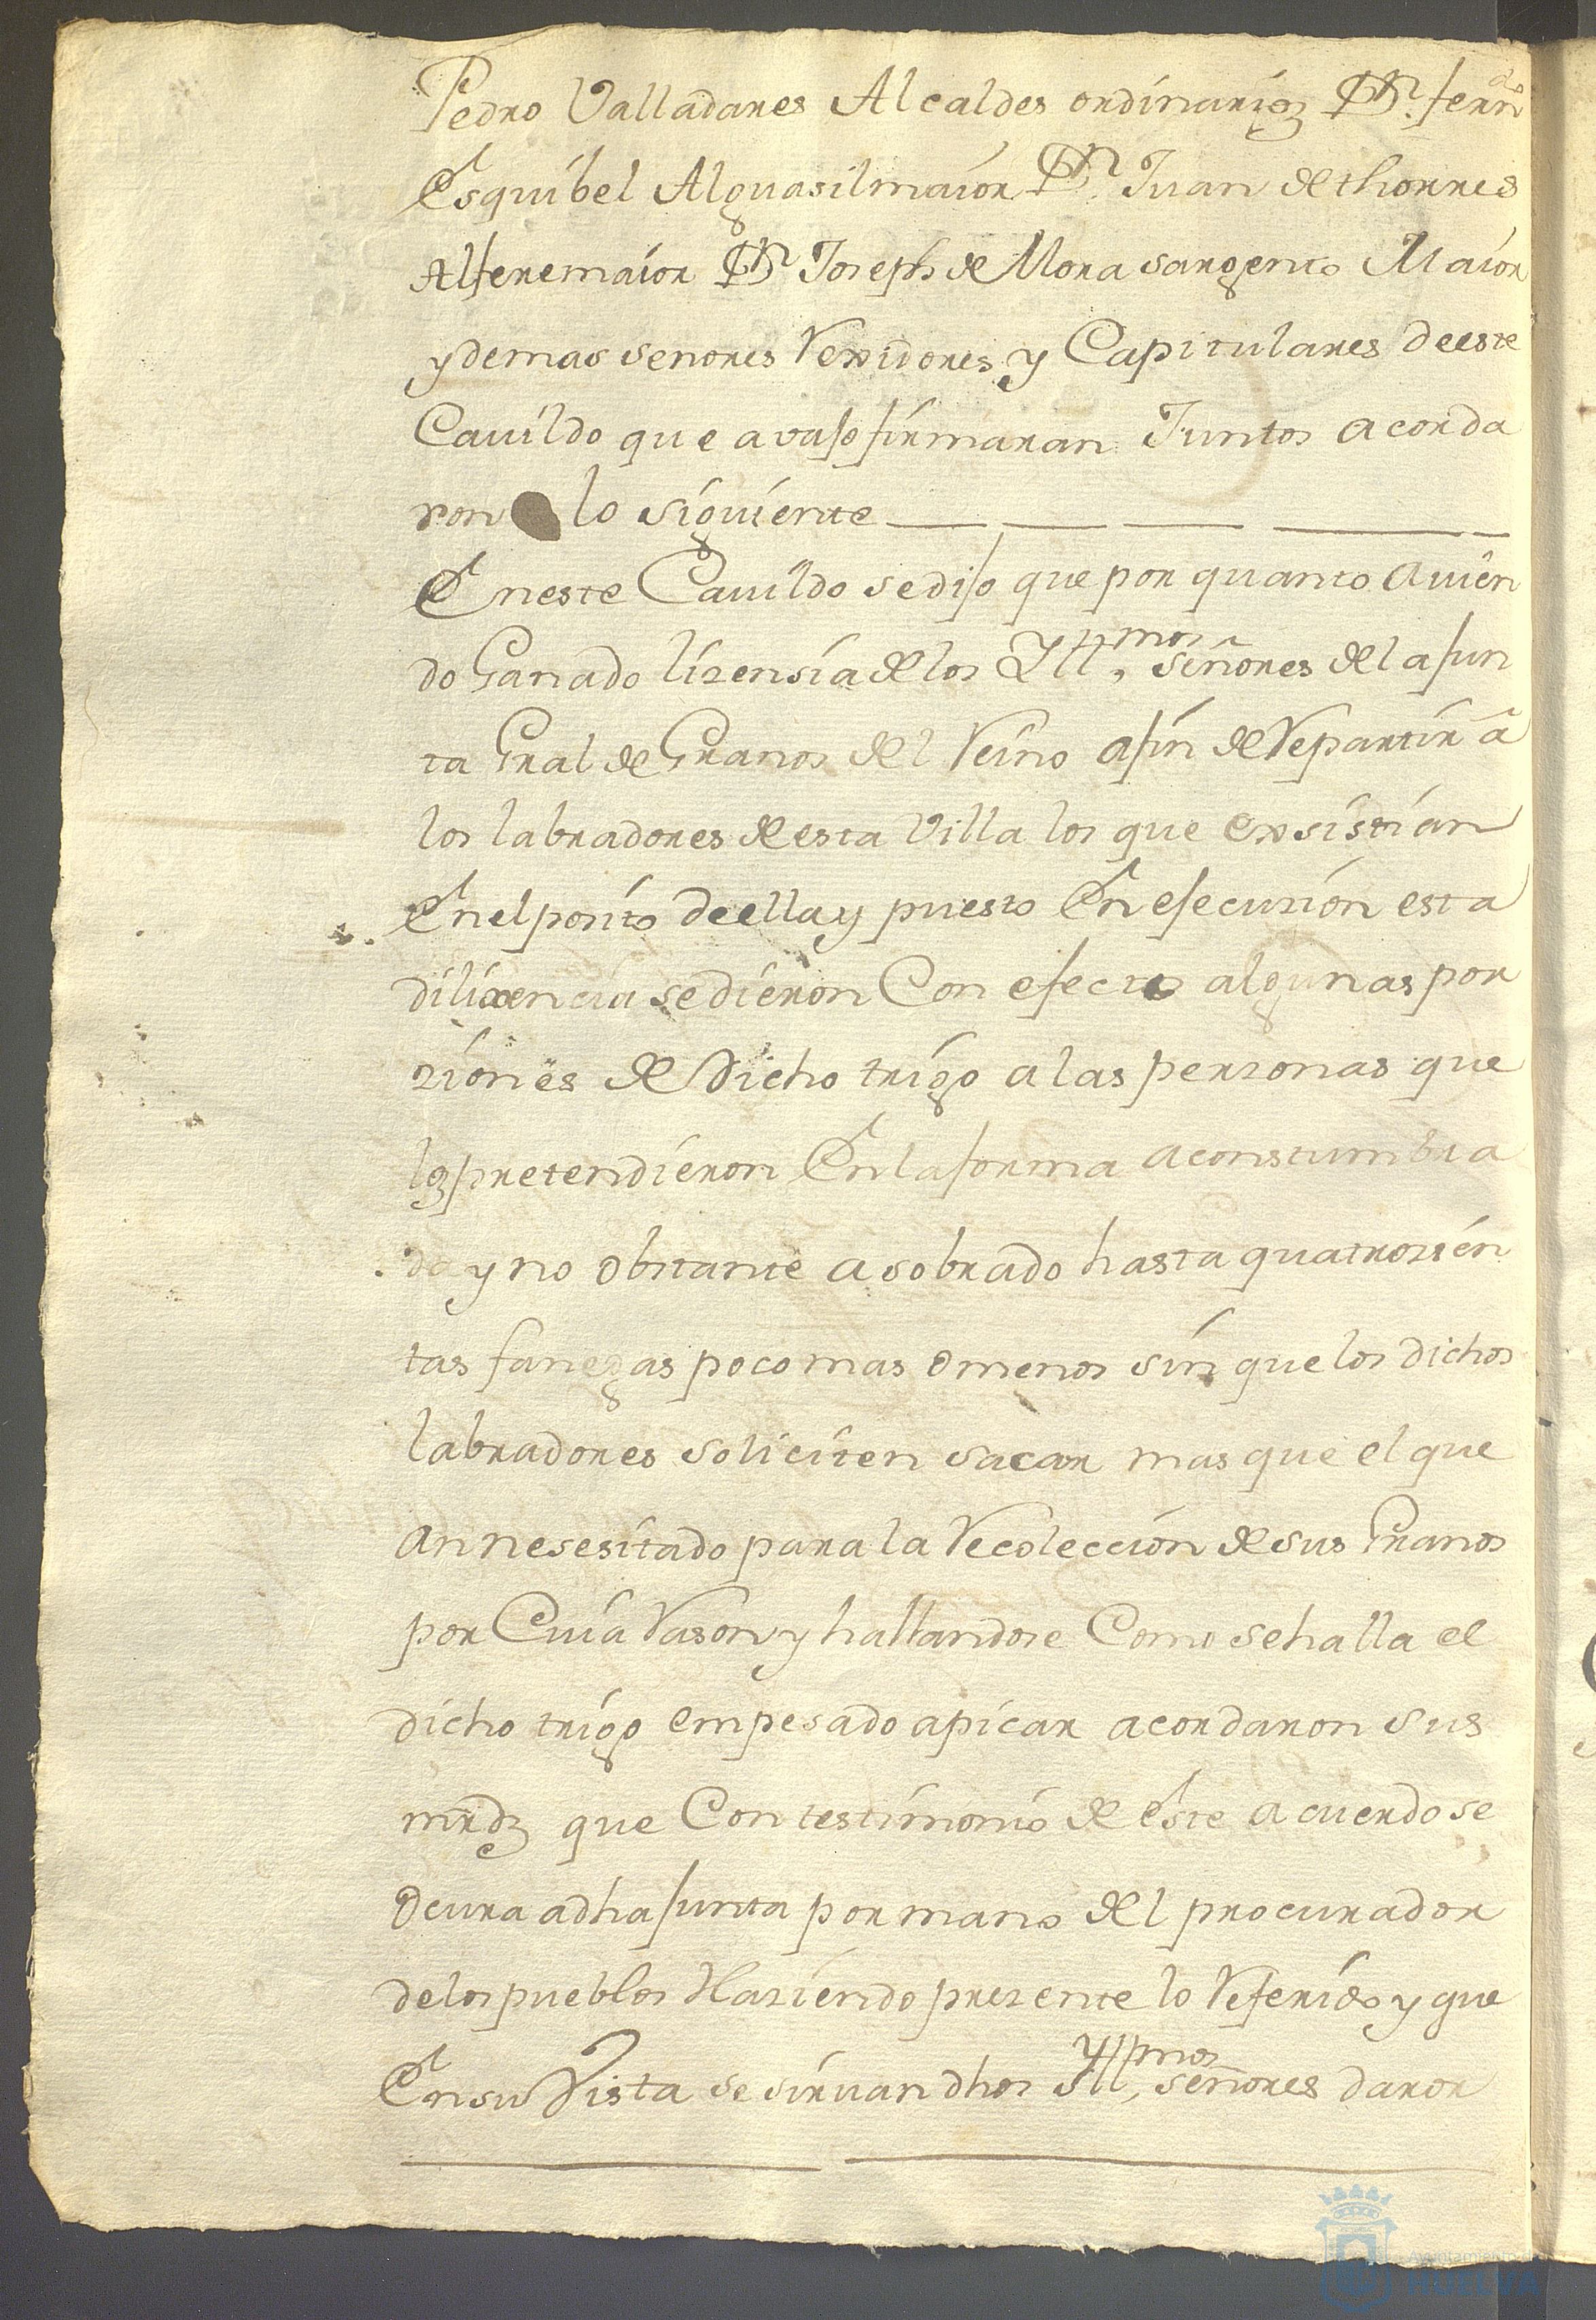 Pedro Valladares Alcaldes ordinarios Dn. ferndo
Esquibel Alguasilmaior Dn. Juan de thorres
Alferemaior Dn Joseph de Mora sargento Maior
y demas senores Rexidores y Capitulares de este
Cauildo que avajo firmaran Juntos acorda
ron lo siguiente
En este Cauildo se dijo que por quanto auien
do Ganado lizensia de los Yllmos, señores de la Jun
ta Gral de Granos del Reino a fin de Repartir â
los labradores de esta Villa los que exsistian
En el posito de ella y puesto En ejecuzion esta
dilixencia se dieron Con efecto algunas por
ziones de Dicho trigo a las perzonas que
lo pretendieron En la forma aconstumbra
da y no obstante a sobrado hasta quatrozien
tas fanegas poco mas o menos sin que los dichos
labradores soliciten sacar mas que el que
an nesesitado para la Recoleccion de sus Granos
por Cuia Rason y hallandose Como se halla el
dicho trigo empesado a picar acordaron sus
mrds que Con testimonio de este acuerdo se
Ocurra a dha Junta por mano del procurador
de los pueblos Haziendo prezente lo Referido y que
En su Vista se siruan dhos Yllmos, señores dar or
Ayuntamiento de
HUELVA